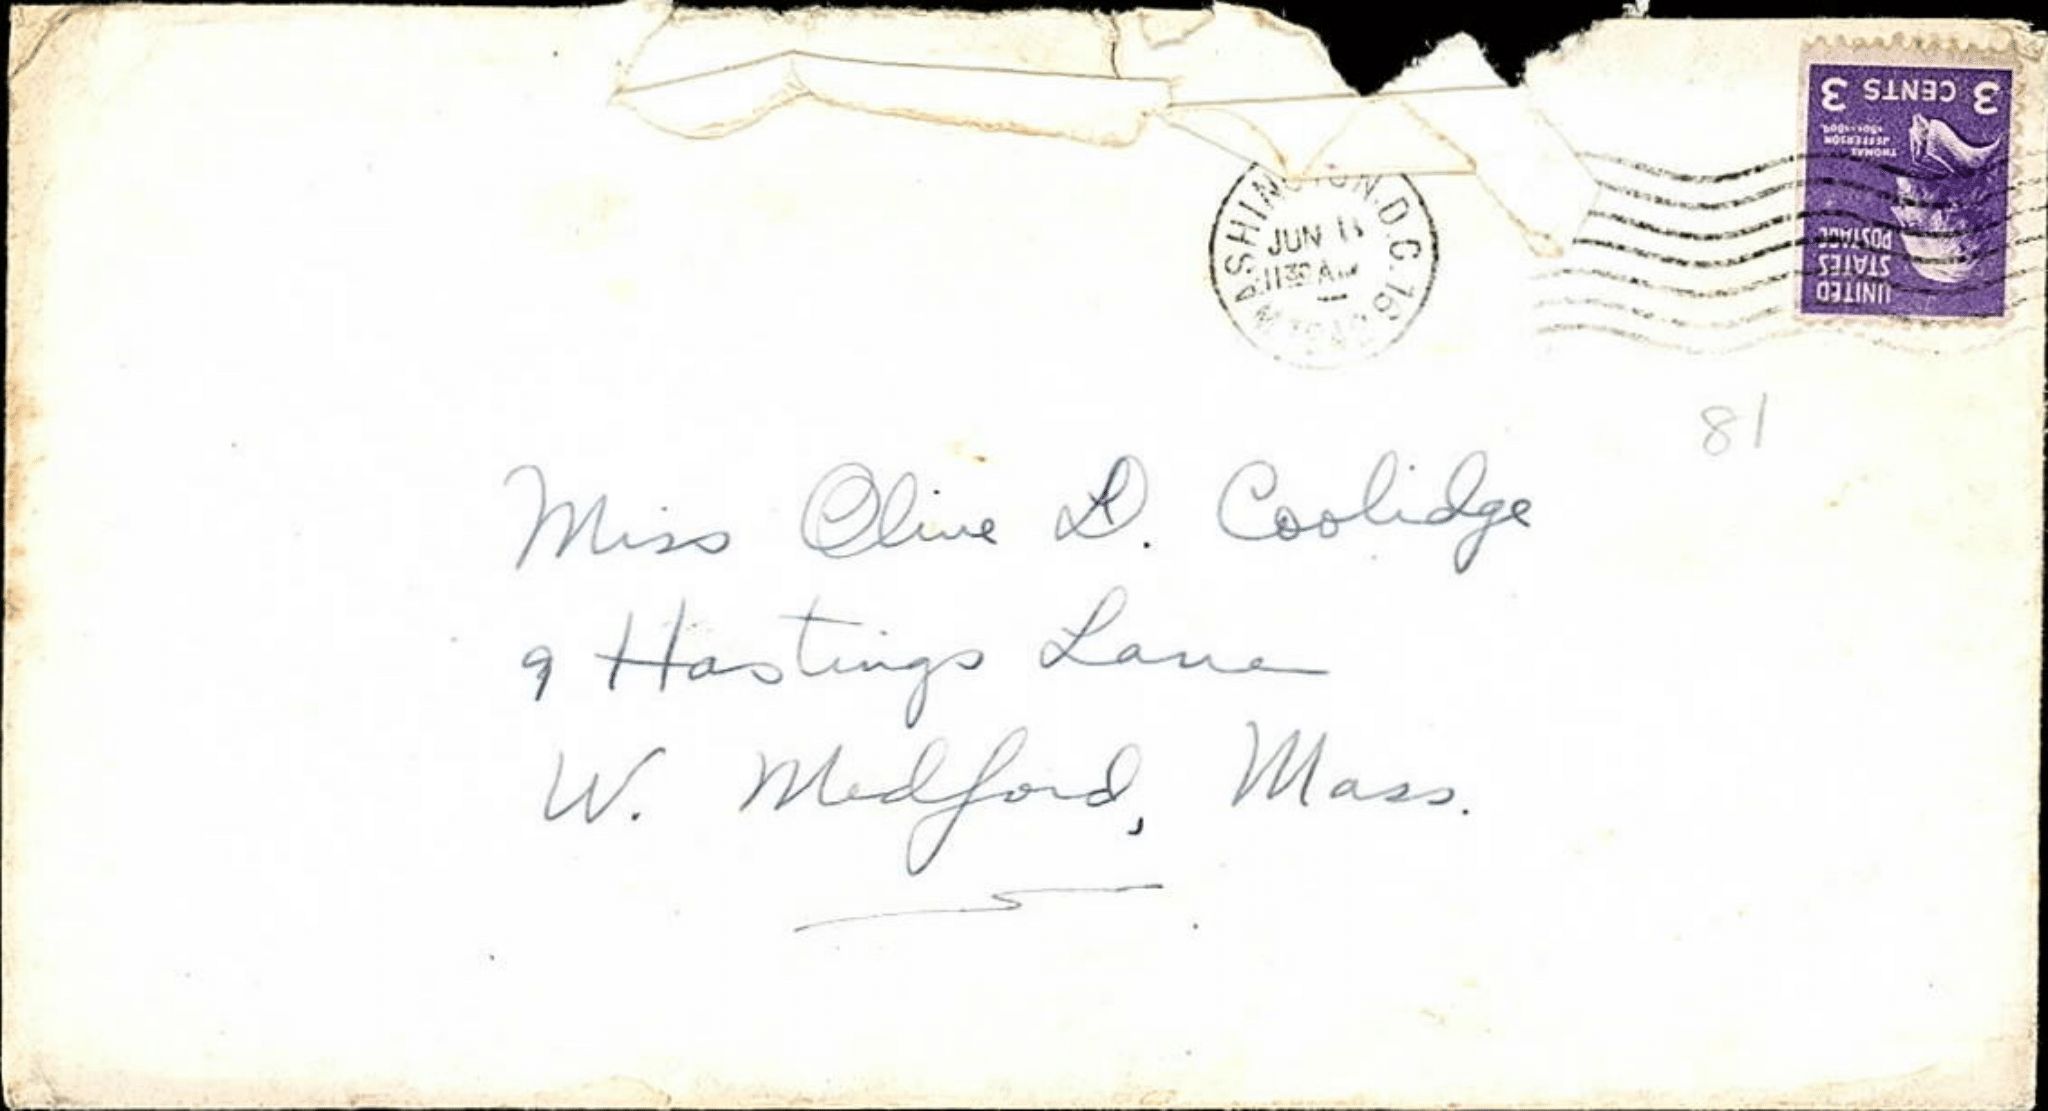 3 CENTS 3
THOMAS
JEFFERSON
1801-1809
UNITED
STATES
POSTAGE
WASHINGTON, D.C. 16
JUN 11
1130 AM
81
Miss Olive D. Coolidge
9 Hastings Lane
W. Medford, Mass.